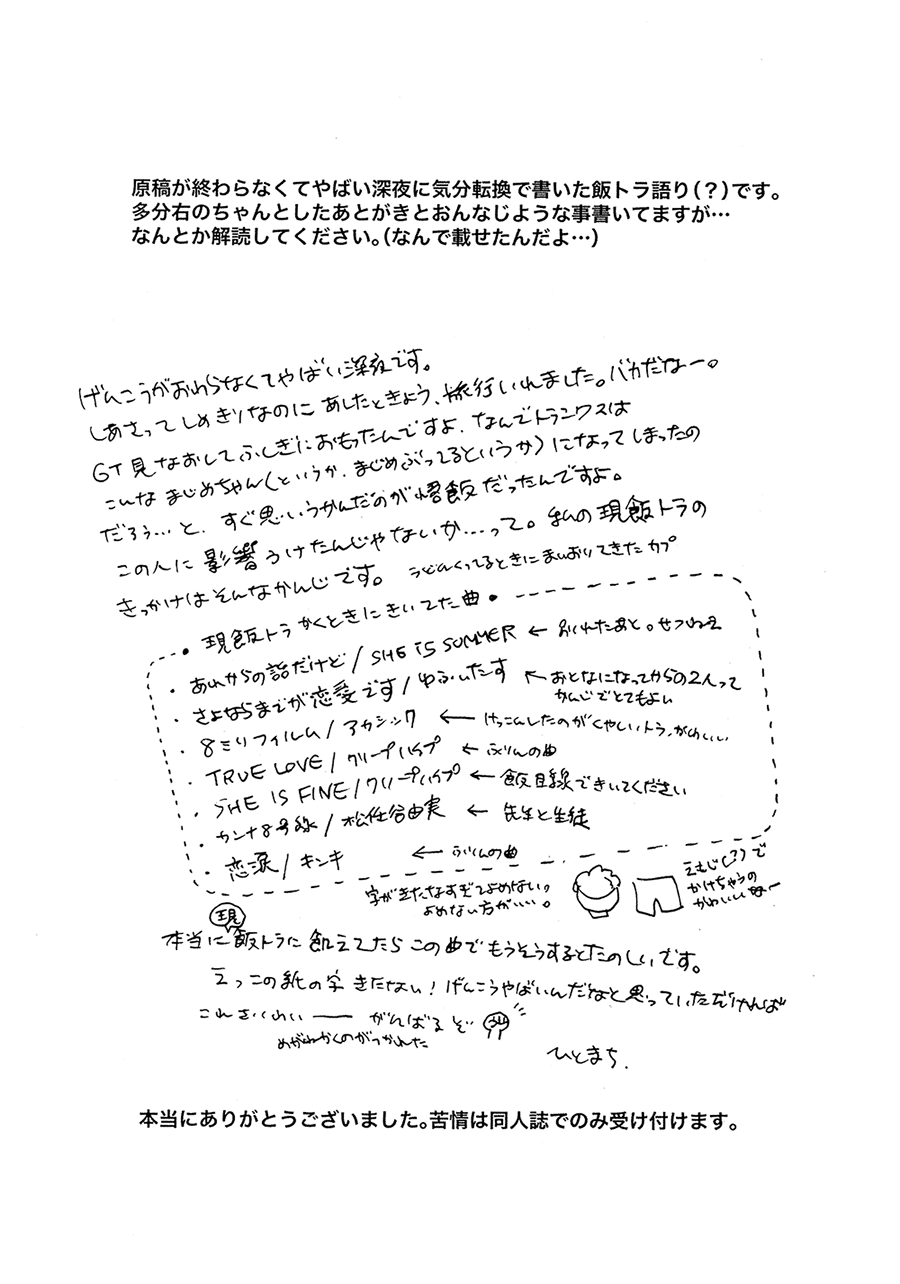 原稿が終わらなくてやばい深夜に気分転換で書いた飯トラ語り(？)です。
多分右のちゃんとしたあとがきとおんなじような事書いてますが…
なんとか解読してください。(なんで載せたんだよ…)
げんこうがおわらなくてやばい深夜です。
しあさってしめきりなのに あしたときょう、旅行いれました。バカだなー。
GT見なおしてふしぎにおもったんですよ、なんでトランクスは
こんなまじめちゃん(というか、まじめぶってるというか)になってしまったの
だろう…と、すぐ思いうかんだのが悟飯だったんですよ。
この人に影響うけたんじゃないか……って。私の現飯トラの
きっかけはそんなかんじです。
うどんくってるときにまいおりてきたカプ
・現飯トラかくときにきいてた曲・
・あれからの話だけど/SHE IS SUMMER ← わかれたあと。せつねえ
・さよならまでが恋愛です/ゆふぃたす ← おとなになってからの2人って
かんじでとてもよい
・8ミリフィルム/アカシック ← けっこんしたのがくやしいトラ、かわいい
・TRUE LOVE/クリープハイプ ← ふりんの曲
・SHE IS FINE/クリープハイプ ← 飯目線できいてください
・カンナ8号線/松任谷由実 ← 先生と生徒
・恋涙/キンキ ← ふりんの曲
字がきたなすぎてよめない。
よめない方がいい。
えもじ(？)で
かけちゃうの
かわいいなー
現
本当に飯トラに飢えてたらこの曲でもうそうするとたのしいです。
えっこの紙の字きたない！げんこうやばいんだなと思っていただければ
これさいわい ― がんばるぞ
めがねかくのがつかれた
ひとまち.
本当にありがとうございました。苦情は同人誌でのみ受け付けます。